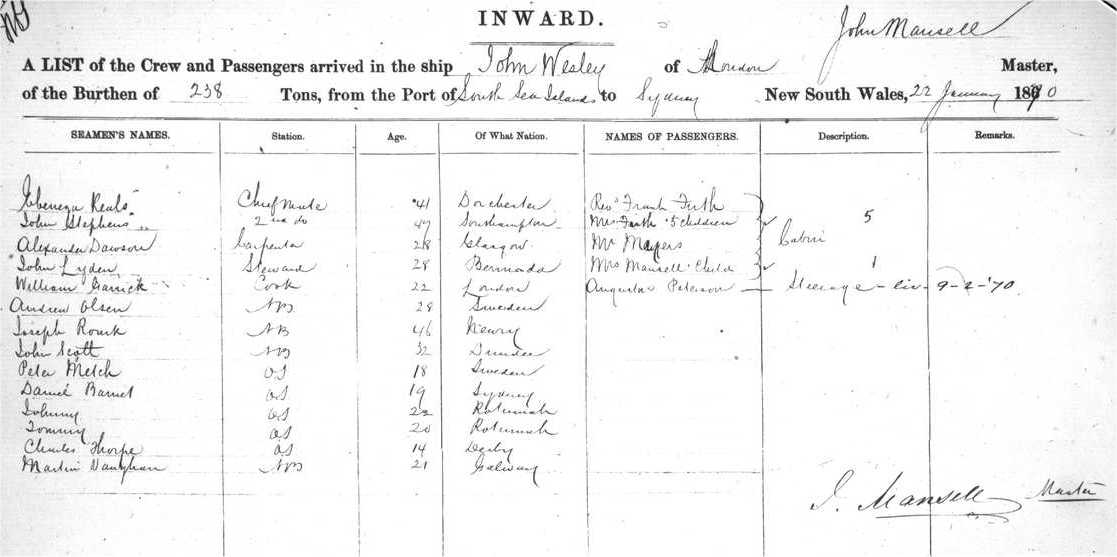 INWARD.
John Mansell
A LIST of the Crew and Passengers arrived in the ship John Wesley of London Master,
of the Burthen of 238 Tons, from the Port of South Sea Islands to Sydney New South Wales, 22 January 1870
SEAMEN'S NAMES. Station. Age. Of What Nation. NAMES OF PASSENGERS. Description. Remarks.
Ebenezer Chief Mate 41 Dorchester Revd Frank Firth
John Stephens 2nd do 47 Southampton Mrs Firth 5 children 5
Alexander Dawson Carpenter 28 Glasgow Mr Cabin
John Lyden Steward 28 Bermuda Mrs Mansell Child 1
William Garrick Cook 22 London Augustus Peterson Steerage 9-2-'70
Andrew Olsen AB 28 Sweden
Joseph Rourk AB 46 Newry
John Scott AB 32 Dundee
Peter Metch OS 18 Sweden
Daniel Barnet OS 19 Sydney
Johnny OS 22 Rotumah
Tommy OS 20 Rotumah
Charles Thorpe OS 14 Derby
Martin Vaughan AB 21 Galway
J. Mansell Master